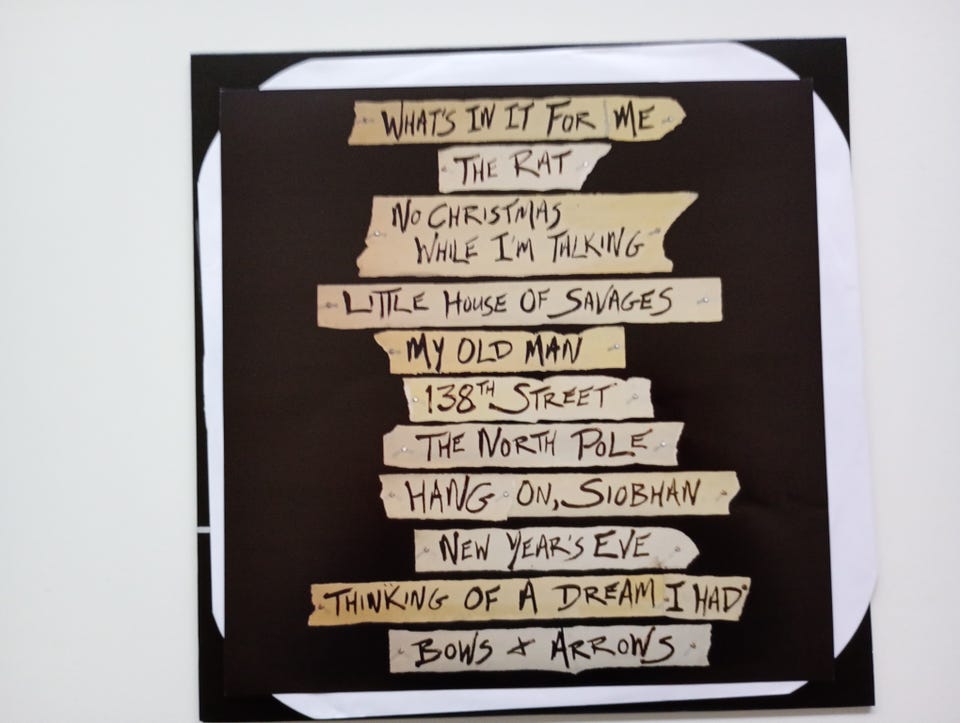 WHAT'S IN IT FOR ME
THE RAT
NO CHRISTMAS
WHILE I'M TALKING
LITTLE HOUSE OF SAVAGES
MY OLD MAN
138TH STREET
THE NORTH POLE
HANG ON, SIOBHAN
NEW YEAR'S EVE
THINKING OF A DREAM I HAD
BOWS + ARROWS